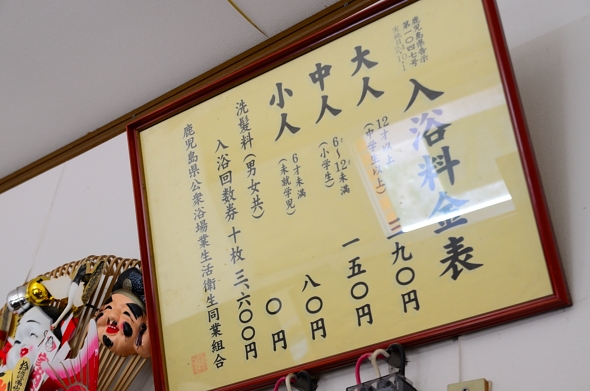 鹿児島県告示
第一〇四七号
入浴料金表
大人 12才以上 (中学生以上) 三九〇円
中人 6才〜12才未満 (小学生) 一五〇円
小人 6才未満 (未就学児) 八〇円
洗髪料(男女共) 〇円
入浴回数券 十枚 三、六〇〇円
鹿児島県公衆浴場業生活衛生同業組合